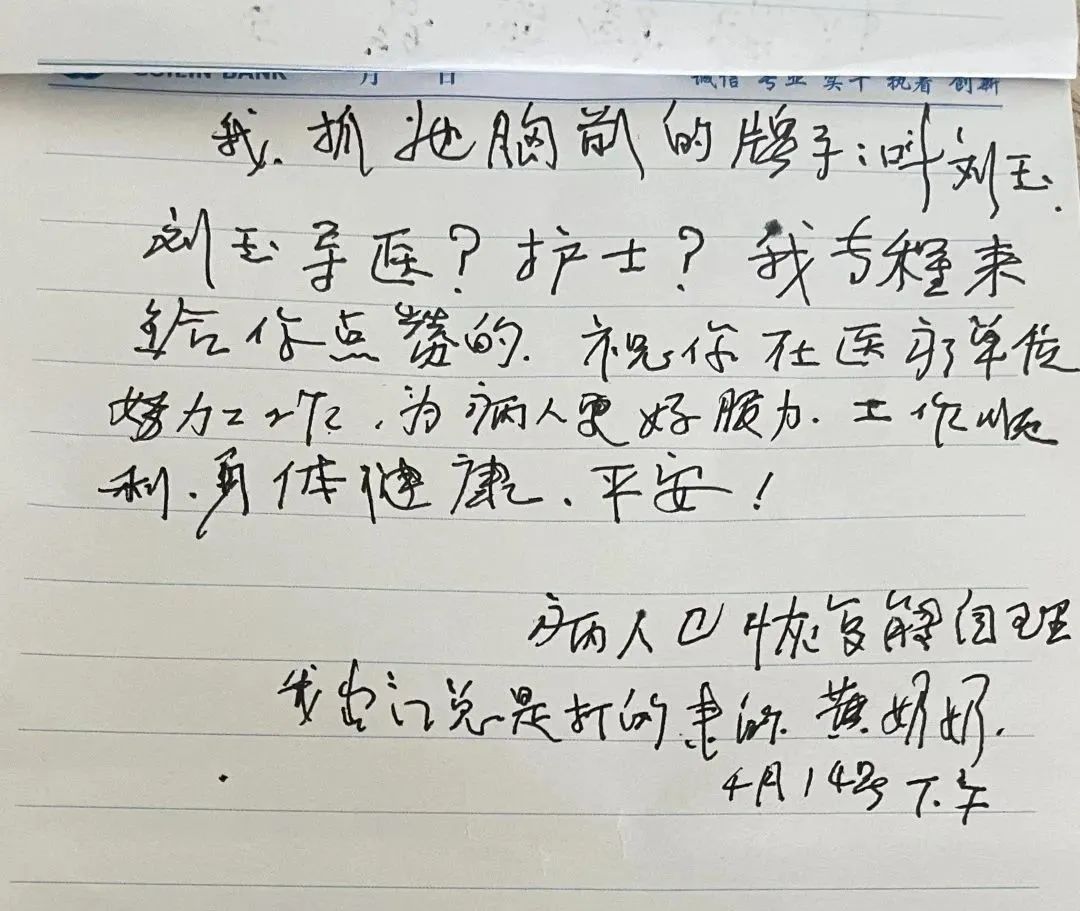 GUILIN BANK 月 日 诚信 专业 实干 执着 创新
我.抓她胸前的牌子:叫刘玉.
刘玉导医?护士?我专程来
给你点赞的.祝你在医疗单位
努力工作,为病人更好服力.工作顺
利.身体健康、平安!
病人已恢复能自理
我出门总是打的来的.黄奶奶.
4月14号下午